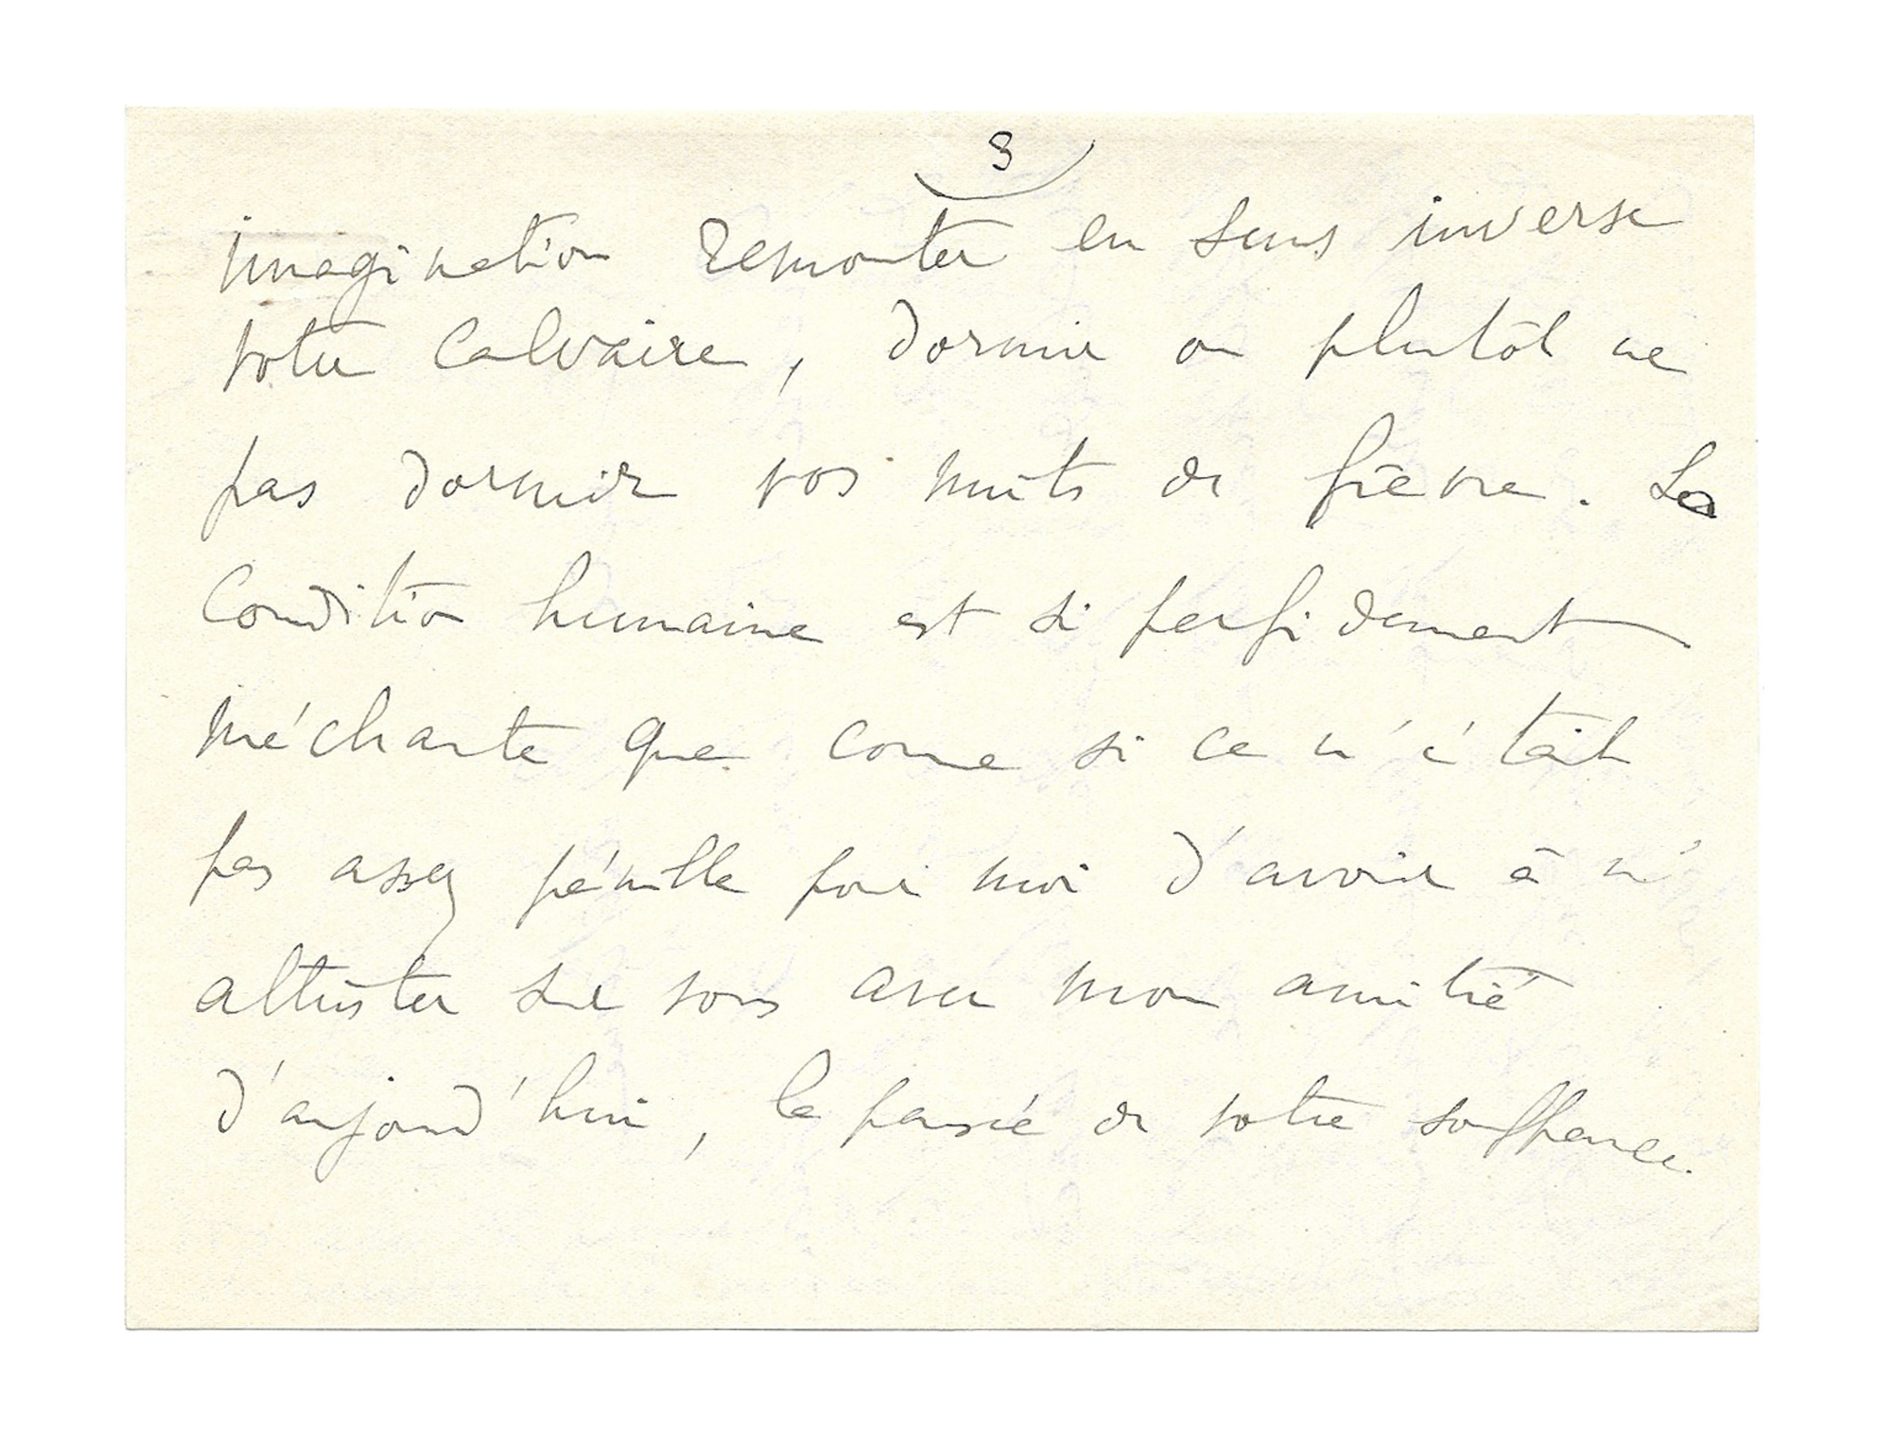 3
imagination remonter en sens inverse
votre Calvaire, dormir ou plutôt ne
pas dormir vos nuits de fièvre. La
Condition humaine est si perfidement
méchante que come si ce n'était
pas assez pénible pour moi d'avoir à m'
attrister sur vous avec mon amitié
d'aujourd'hui, la pensée de votre souffrance